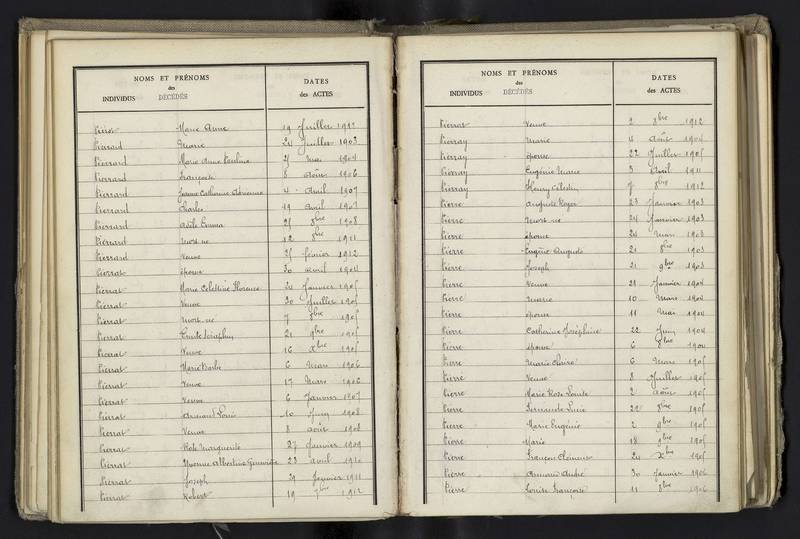 NOMS ET PRÉNOMS
des
INDIVIDUS DÉCÉDÉS
DATES
des ACTES
Piérot Marie Anne 19 Juillet 1912
Pierrard Marie 24 Juillet 1903
Pierrard Marie Anne Pauline Mai 1904
Pierrard Françoise 8 Août 1906
Pierrard Jeanne Catherine Adrienne 4 Avril 1907
Pierrard Charles 19 Avril 1907
Pierrard Adèle Emma 8bre 1908
Pierrard Mort né 12 8bre 1911
Pierrard Veuve février 1912
Pierrat épouse 30 avril 1904
Pierrat Marie Célestine Florence 24 Janvier 1905
Pierrat Veuve 30 Juillet 1905
Pierrat Mort né 7 8bre 1905
Pierrat Séraphin 21 9bre 1905
Pierrat Veuve 16 Xbre 1905
Pierrat Marie Barbe 6 Mars 1906
Pierrat Veuve 17 Mars 1906
Pierrat Veuve 6 Janvier 1907
Pierrat Armand Louis 10 Juin 1908
Pierrat Veuve 8 août 1908
Pierrat Marguerite 27 Janvier 1909
Pierrat Yvonne Albertine Geneviève 23 avril 1910
Pierrat Joseph 29 Janvier 1911
Pierrat Robert 19 7bre 1912
NOMS ET PRÉNOMS
des
INDIVIDUS DÉCÉDÉS
DATES
des ACTES
Pierrat Veuve 2 8bre 1912
Pierray Marie 4 Août 1904
Pierray épouse 22 Juillet 1905
Pierray Eugénie Marie 3 Avril 1911
Pierray Henry Célestin 7 8bre 1912
Pierre Auguste Roger 23 Janvier 1903
Pierre Mort né 24 Janvier 1903
Pierre épouse 24 Mars 1903
Pierre Eugène Auguste 21 8bre 1903
Pierre Joseph 21 9bre 1903
Pierre Veuve 21 Janvier 1904
Pierre Marie 10 Mars 1904
Pierre épouse 11 Mai 1904
Pierre Catherine Joséphine 22 Juin 1904
Pierre épouse 6 8bre 1904
Pierre Marie Claire 6 Mars 1905
Pierre Veuve 8 Juillet 1905
Pierre Marie Rose Louise 2 Août 1905
Pierre Fernande Lucie 29 8bre 1905
Pierre Marie Eugénie 2 9bre 1905
Pierre Marie 18 9bre 1905
Pierre François Clément 24 Xbre 1905
Pierre Armand André 30 Janvier 1906
Pierre Louise Françoise 11 8bre 1906